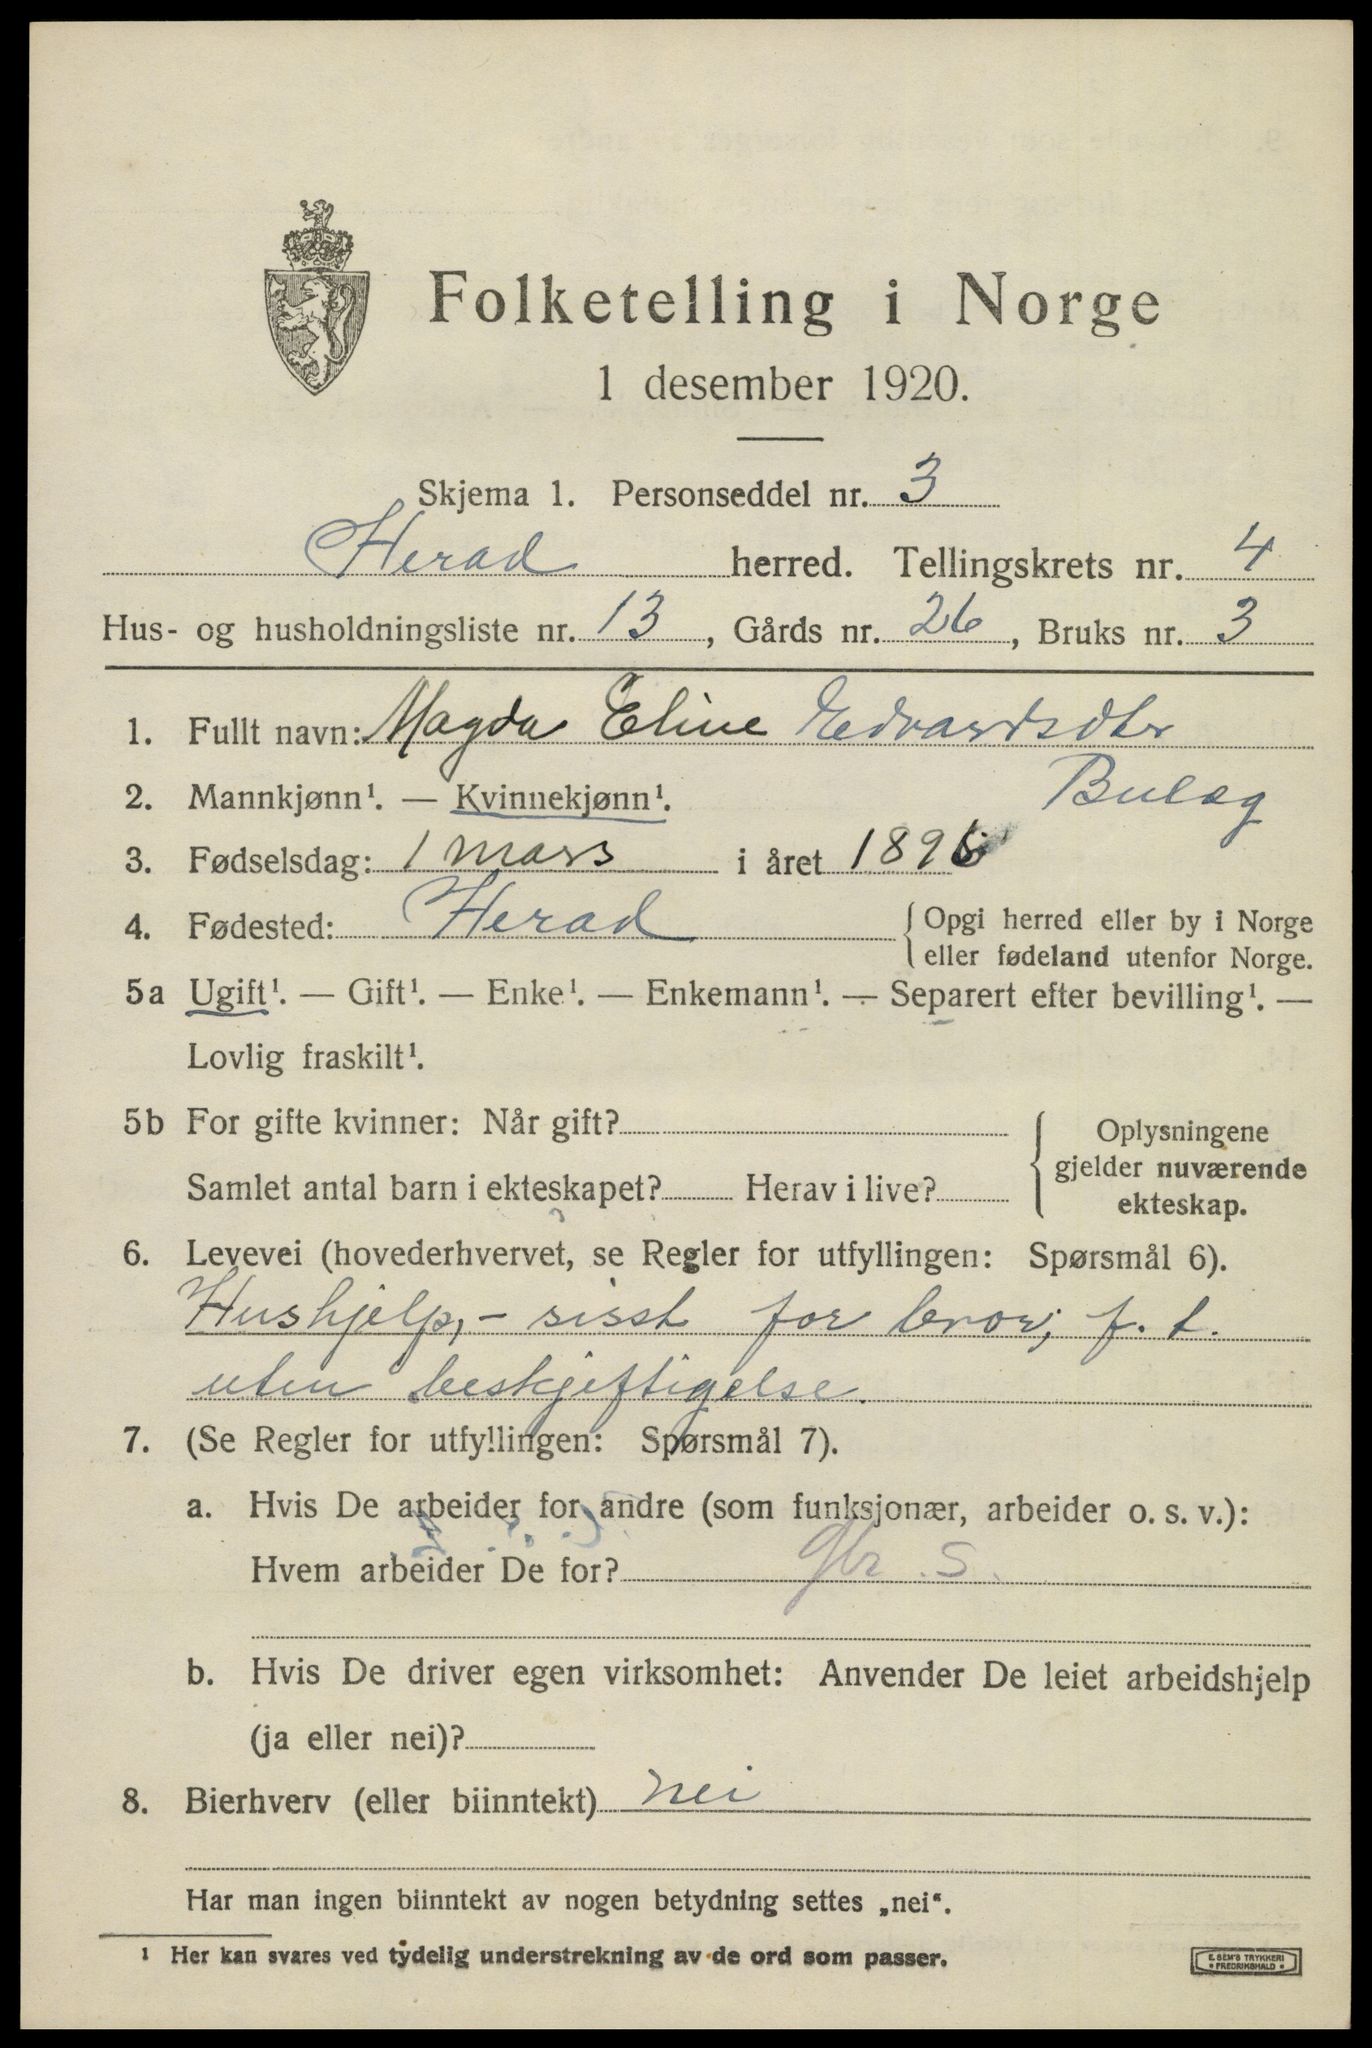 Folketelling i Norge
1 desember 1920.
Skjema 1. Personseddel nr. 3
Herad herred. Tellingskrets nr. 4
Hus- og husholdningsliste nr. 13, Gårds nr. 26, Bruks nr. 3
1. Fullt navn: Magda Eline Edvardsdtr
Bulæg
2. Mannkjønn¹. — Kvinnekjønn¹.
3. Fødselsdag: 1 mars i året 1896
4. Fødested: Herad {Opgi herred eller by i Norge
eller fødeland utenfor Norge.
5a Ugift¹. — Gift¹. — Enke¹. — Enkemann¹. — Separert efter bevilling¹. —
Lovlig fraskilt¹.
5b For gifte kvinner: Når gift?
Samlet antal barn i ekteskapet? Herav i live?
{Oplysningene
gjelder nuværende
ekteskap.
6. Levevei (hovederhvervet, se Regler for utfyllingen: Spørsmål 6).
Hushjelp, - sisst for bror, f. t.
uten beskjeftigelse.
7. (Se Regler for utfyllingen: Spørsmål 7).
a. Hvis De arbeider for andre (som funksjonær, arbeider o. s. v.):
Hvem arbeider De for? S.
b. Hvis De driver egen virksomhet: Anvender De leiet arbeidshjelp
(ja eller nei)?
8. Bierhverv (eller biinntekt) nei
Har man ingen biinntekt av nogen betydning settes „nei“.
¹ Her kan svares ved tydelig understrekning av de ord som passer.
E. SEM'S TRYKKERI
• FREDRIKSHALD •